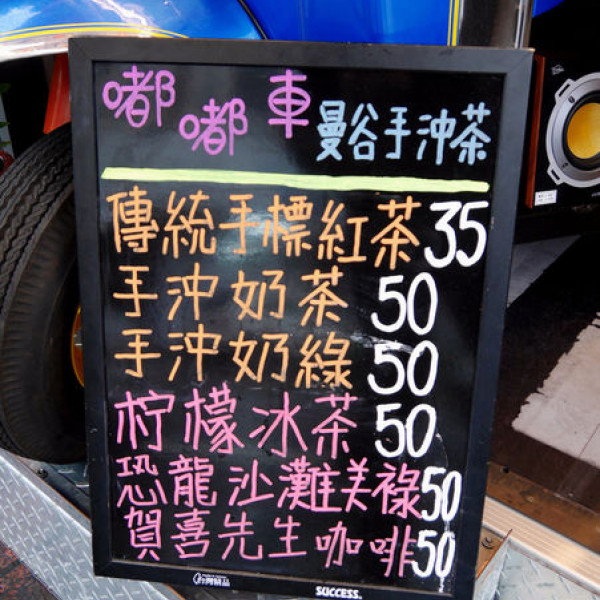 嘟嘟車 曼谷手沖茶
傳統手標紅茶35
手沖奶茶 50
手沖奶綠 50
柠檬冰茶 50
恐龍沙灘美祿50
賀喜先生咖啡50
SUCCESS.